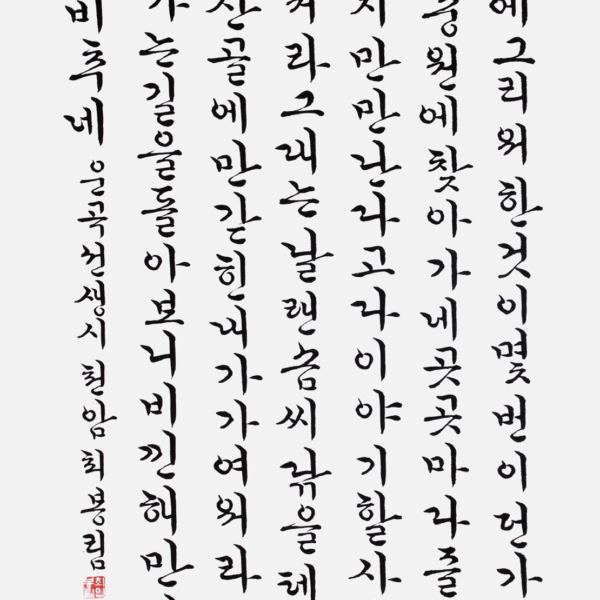 에그리워한것이몇번이던가
원에찾아가네곳곳마다줄
지만만난다고다이야기할사
라그대는날랜솜씨 을테
산골에만갇힌내가가여워라
가는길을돌아보니비낀해만
비추네 운곡선생시 천암최봉림